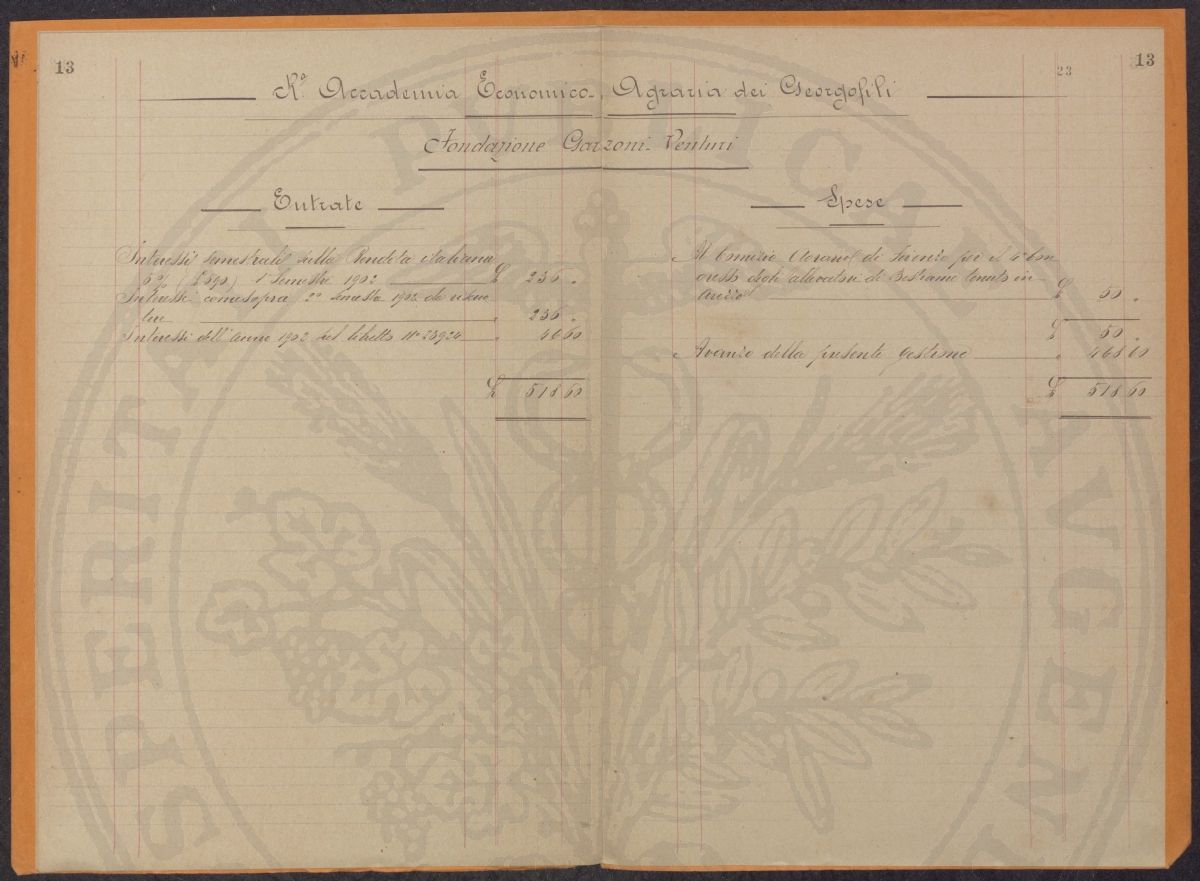 13
23
13
Rª Accademia Economico-Agraria dei Georgofili
Fondazione Garzoni-Venturi
Entrate
Interessi semestrali della Rendita italiana
5% (£ 590) 1º Semestre 1902 £ 236 "
Interessi comesopra 2º Semestre 1902 da riscuo
tere " 236 "
Interessi dell'anno 1902 del libretto Nº 23924 " 46 60
£ 518 60
Spese
Al Comizio Agrario di Firenze per il 4º Con
gresso degli allevatori di Bestiame tenuto in
Arezzo £ 50 "
£ 50 "
Avanzo della presente gestione " 468 60
£ 518 60
PROSPERITATI PVBLICAE AVGENDAE